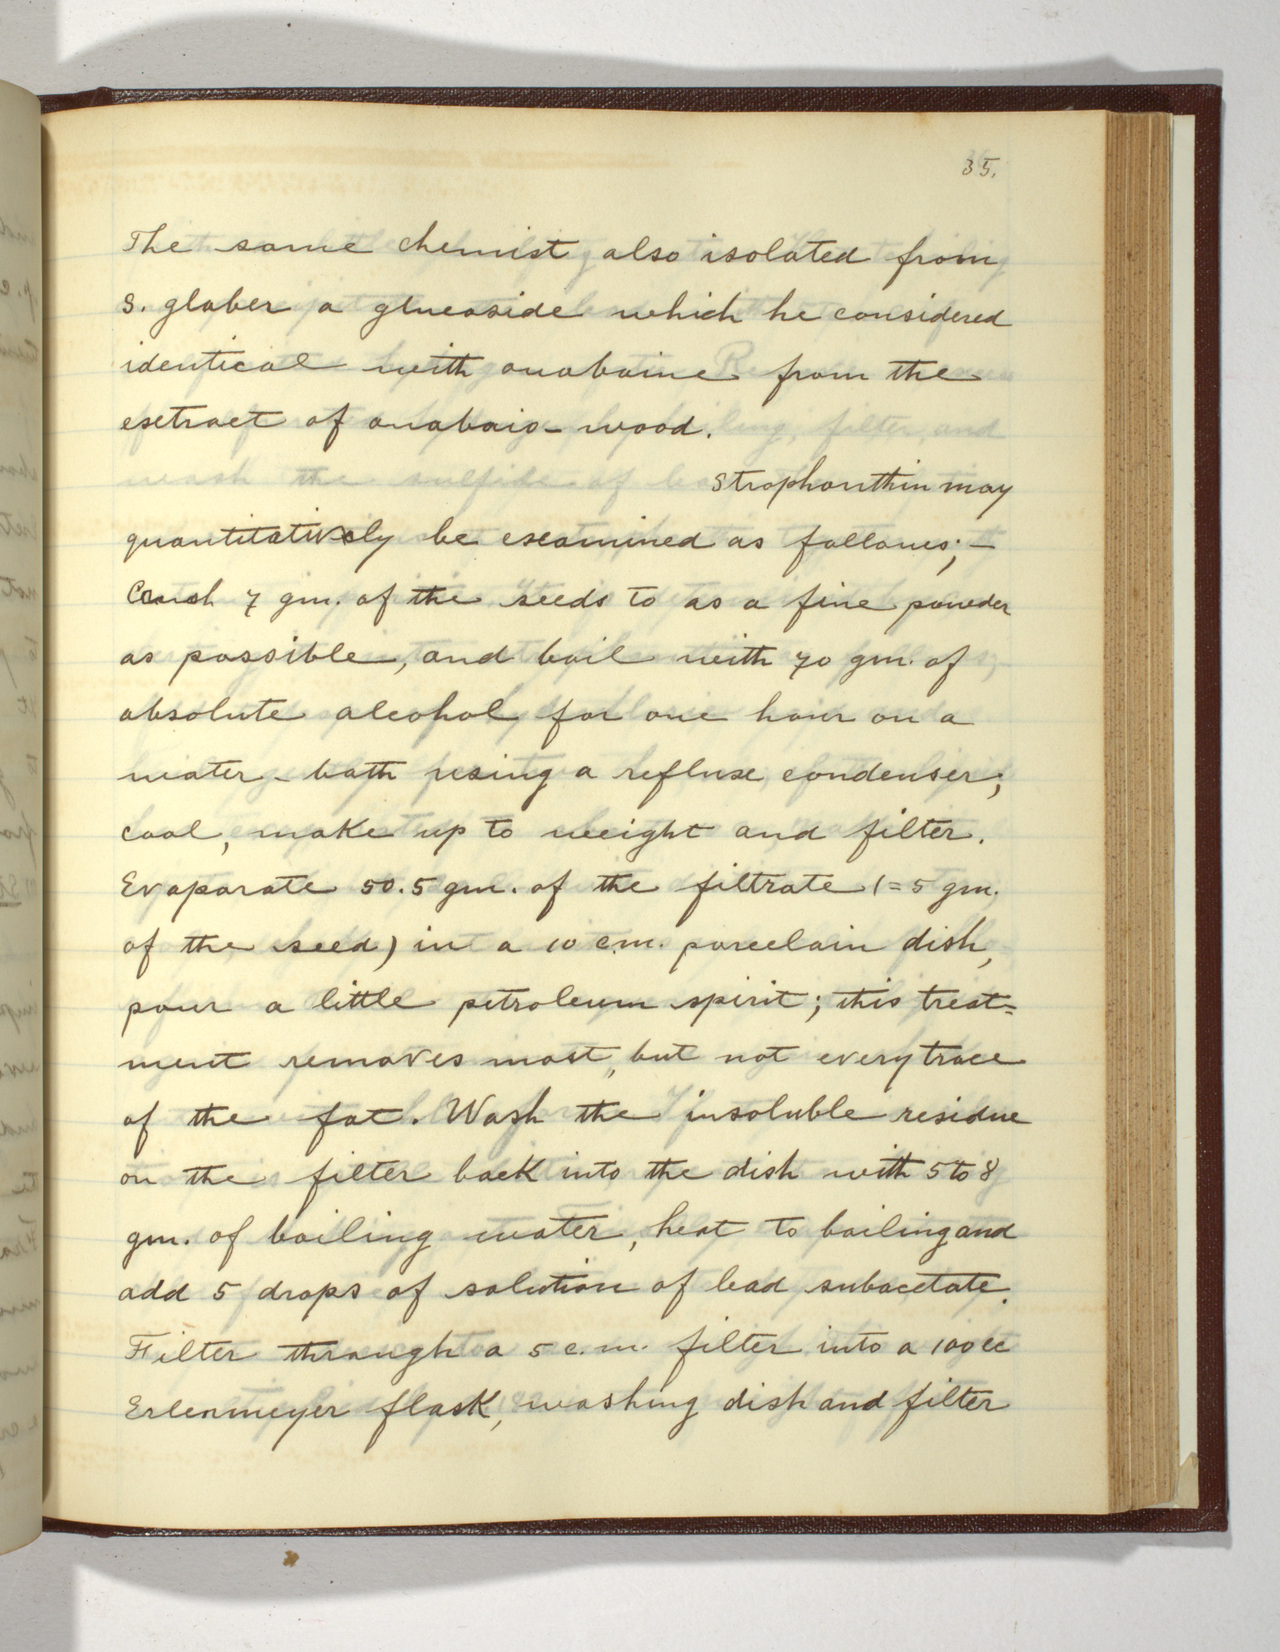 35.
The same chemist also isolated from
S. glaber a glucoside which he considered
identical with ouabaine from the
extract of ouabaio-wood.
Strophanthin may
quantitatively be examined as follows;-
Crush 7 gm. of the seeds to as a fine powder
as possible, and boil with 70 gm. of
absolute alcohol for one hour on a
water-bath using a reflux condenser;
cool, make up to weight and filter.
Evaporate 50.5 gm. of the filtrate (=5 gm.
of the seed) in a 10 c.m. porcelain dish,
pour a little petroleum spirit; this treat=
ment removes most, but not every trace
of the fat. Wash the insoluble residue
on the filter back into the dish with 5 to 8
gm. of boiling water, heat to boiling and
add 5 drops of solution of lead subacetate.
Filter through a 5 c.m. filter into a 100 cc
Erlenmeyer flask, washing dish and filter